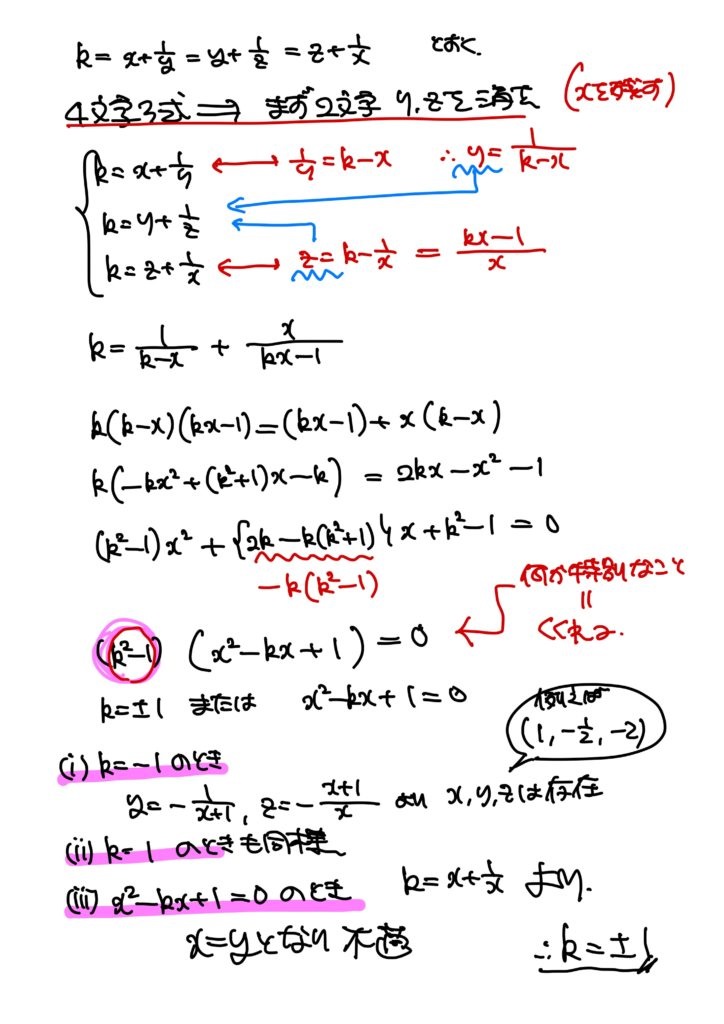 k = x + 1/y = y + 1/z = z + 1/x とおく.
4文字3式 ⟹ まず2文字 y, zを消去 (xを残す)
k = x + 1/y ⟷ 1/y = k − x ∴ y = 1/(k−x)
k = y + 1/z
k = z + 1/x ⟷ z = k − 1/x = (kx−1)/x
k = 1/(k−x) + x/(kx−1)
k(k−x)(kx−1) = (kx−1) + x(k−x)
k(−kx² + (k²+1)x − k) = 2kx − x² − 1
(k²−1)x² + {2k − k(k²+1)}x + k²−1 = 0
−k(k²−1)
何か特別なこと
=
くくれる.
(k²−1)(x² − kx + 1) = 0
k = ±1 または x² − kx + 1 = 0
例えば
(1, −1/2, −2)
(i) k = −1 のとき
y = − 1/(x+1), z = − (x+1)/x より x, y, zは存在
(ii) k = 1 のときも同様
(iii) x² − kx + 1 = 0 のとき k = x + 1/x より.
x = yとなり 不適 ∴ k = ±1